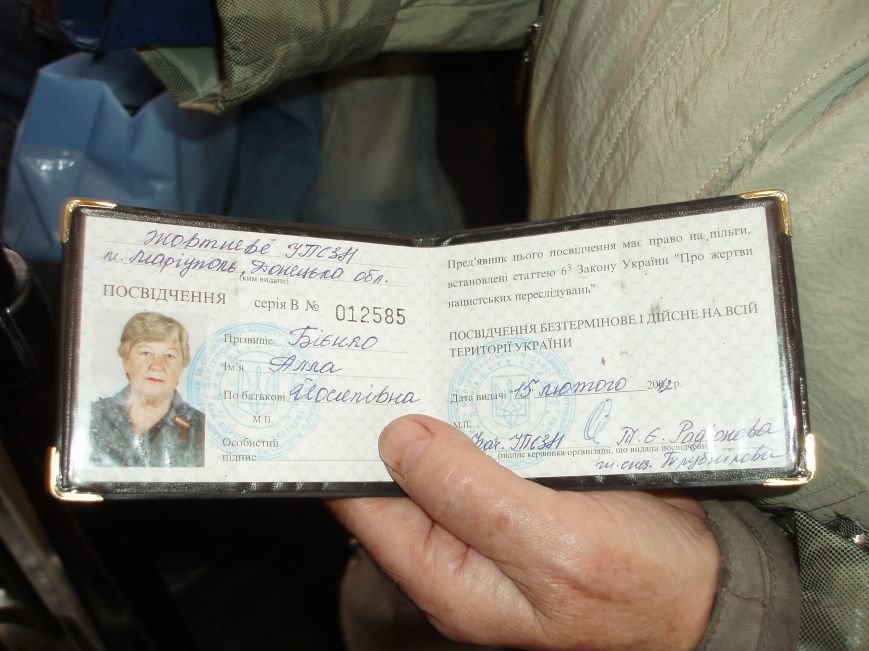 Жовтневе УТСЗН
м. Маріуполь, Донецька обл.
(ким видане)
ПОСВІДЧЕННЯ
серія В № 012585
Прізвище Бієнко
Ім'я Алла
По батькові Йосипівна
М.П.
Особистий
підпис
Пред'явник цього посвідчення має право на пільги,
встановлені статтею 6³ Закону України "Про жертви
нацистських переслідувань"
ПОСВІДЧЕННЯ БЕЗТЕРМІНОВЕ І ДІЙСНЕ НА ВСІЙ
ТЕРИТОРІЇ УКРАЇНИ
Дата видачі "15 лютого 2002 р.
М.П.
Нач. УТСЗН Т. Є. Радіонова
(підпис керівника організації, що видала посвідчення)
гл. спец. Трубнікова